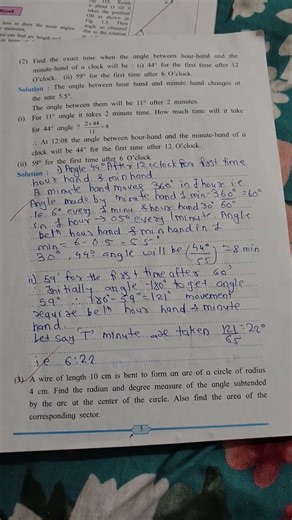 (2) Find the exact time when the angle between hour-hand and the
minute-hand of a clock will be : (i) 44° for the first time after 12
O'clock. (ii) 59° for the first time after 6 O'clock.
Solution : The angle between hour hand and minute hand changes at
the rate 5.5°.
The angle between them will be 11° after 2 minutes.
(i) For 11° angle it takes 2 minute time. How much time will it take
for 44° angle ? 2×44/11 = 8
∴ At 12:08 the angle between hour-hand and the minute-hand of a
clock will be 44° for the first time after 12 O'clock.
(ii) 59° for the first time after 6 O'clock.
Solution : i) Angle 44° After 12 o'clock for first time
hour hand & min hand.
A minute hand moves 360° in 1 hour i.e
Angle made by minute hand 1 min = 360° = 60°
i.e. 6° every 1 minu & hour hand 30°
in 1 hour → 0.5° every 1 minute. Angle
betn hour hand & min hand in 1
min = 6 - 0.5 = 5.5°
30°, 44° angle will be (44°/55) = 8 min
ii) 59° for the first time after 60'
∴ Initially angle = 180° to get angle
59° ∴ 180° - 59° = 121° movement
require betn hour hand & minute
hand.
Let say 'T' minute are taken 121/65 = 22°
i.e 6:22
(3) A wire of length 10 cm is bent to form an arc of a circle of radius
4 cm. Find the radian and degree measure of the angle subtended
by the arc at the center of the circle. Also find the area of the
corresponding sector.
3